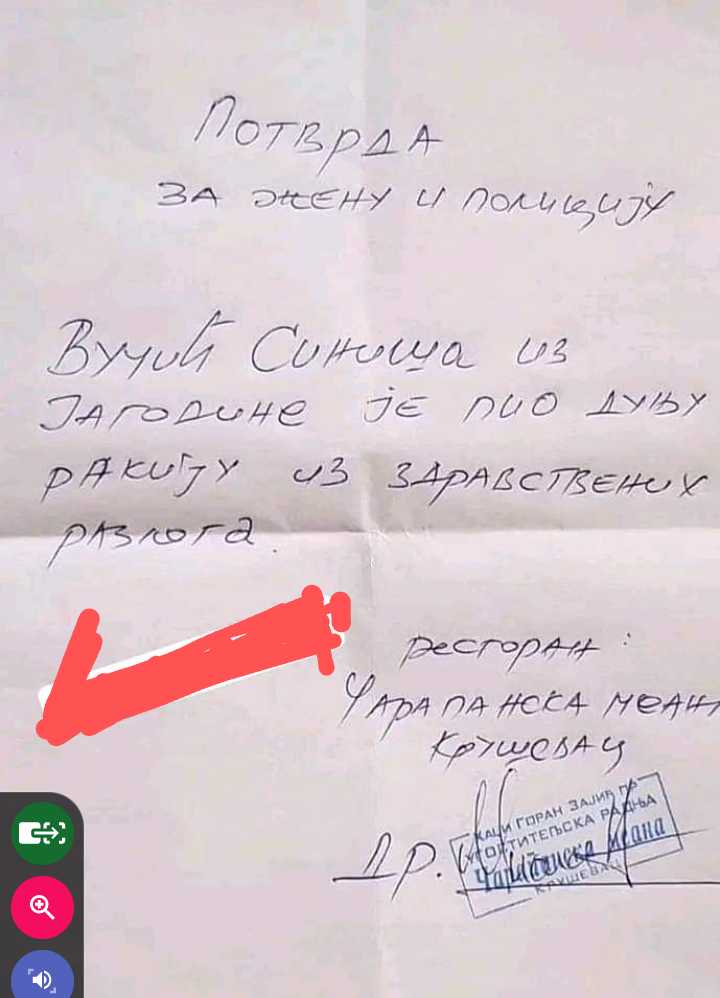 Потврда
за жену и полицију
Вучић Синиша из
Јагодине је пио дуњу
ракију из здравствених
разлога.
ресторан:
Чарапанска меана
Крушевац
Др.
ГОРАН ЗАЈИЋ ПР
УГОСТИТЕЉСКА РАДЊА
Чарапанска меана
КРУШЕВАЦ